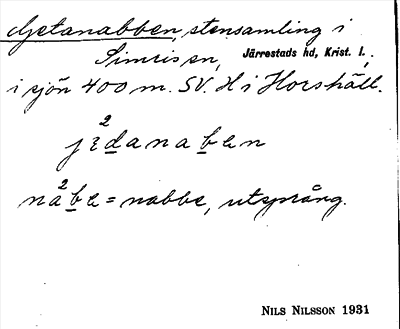 Getanabben, stensamling i
Simrisen, Järrestads hd, Krist. l.,
i sjön 400 m. SV. H i Horshäll.
2
jɛdanaben
2
nabe = nabbe, utsprång.
NILS NILSSON 1931